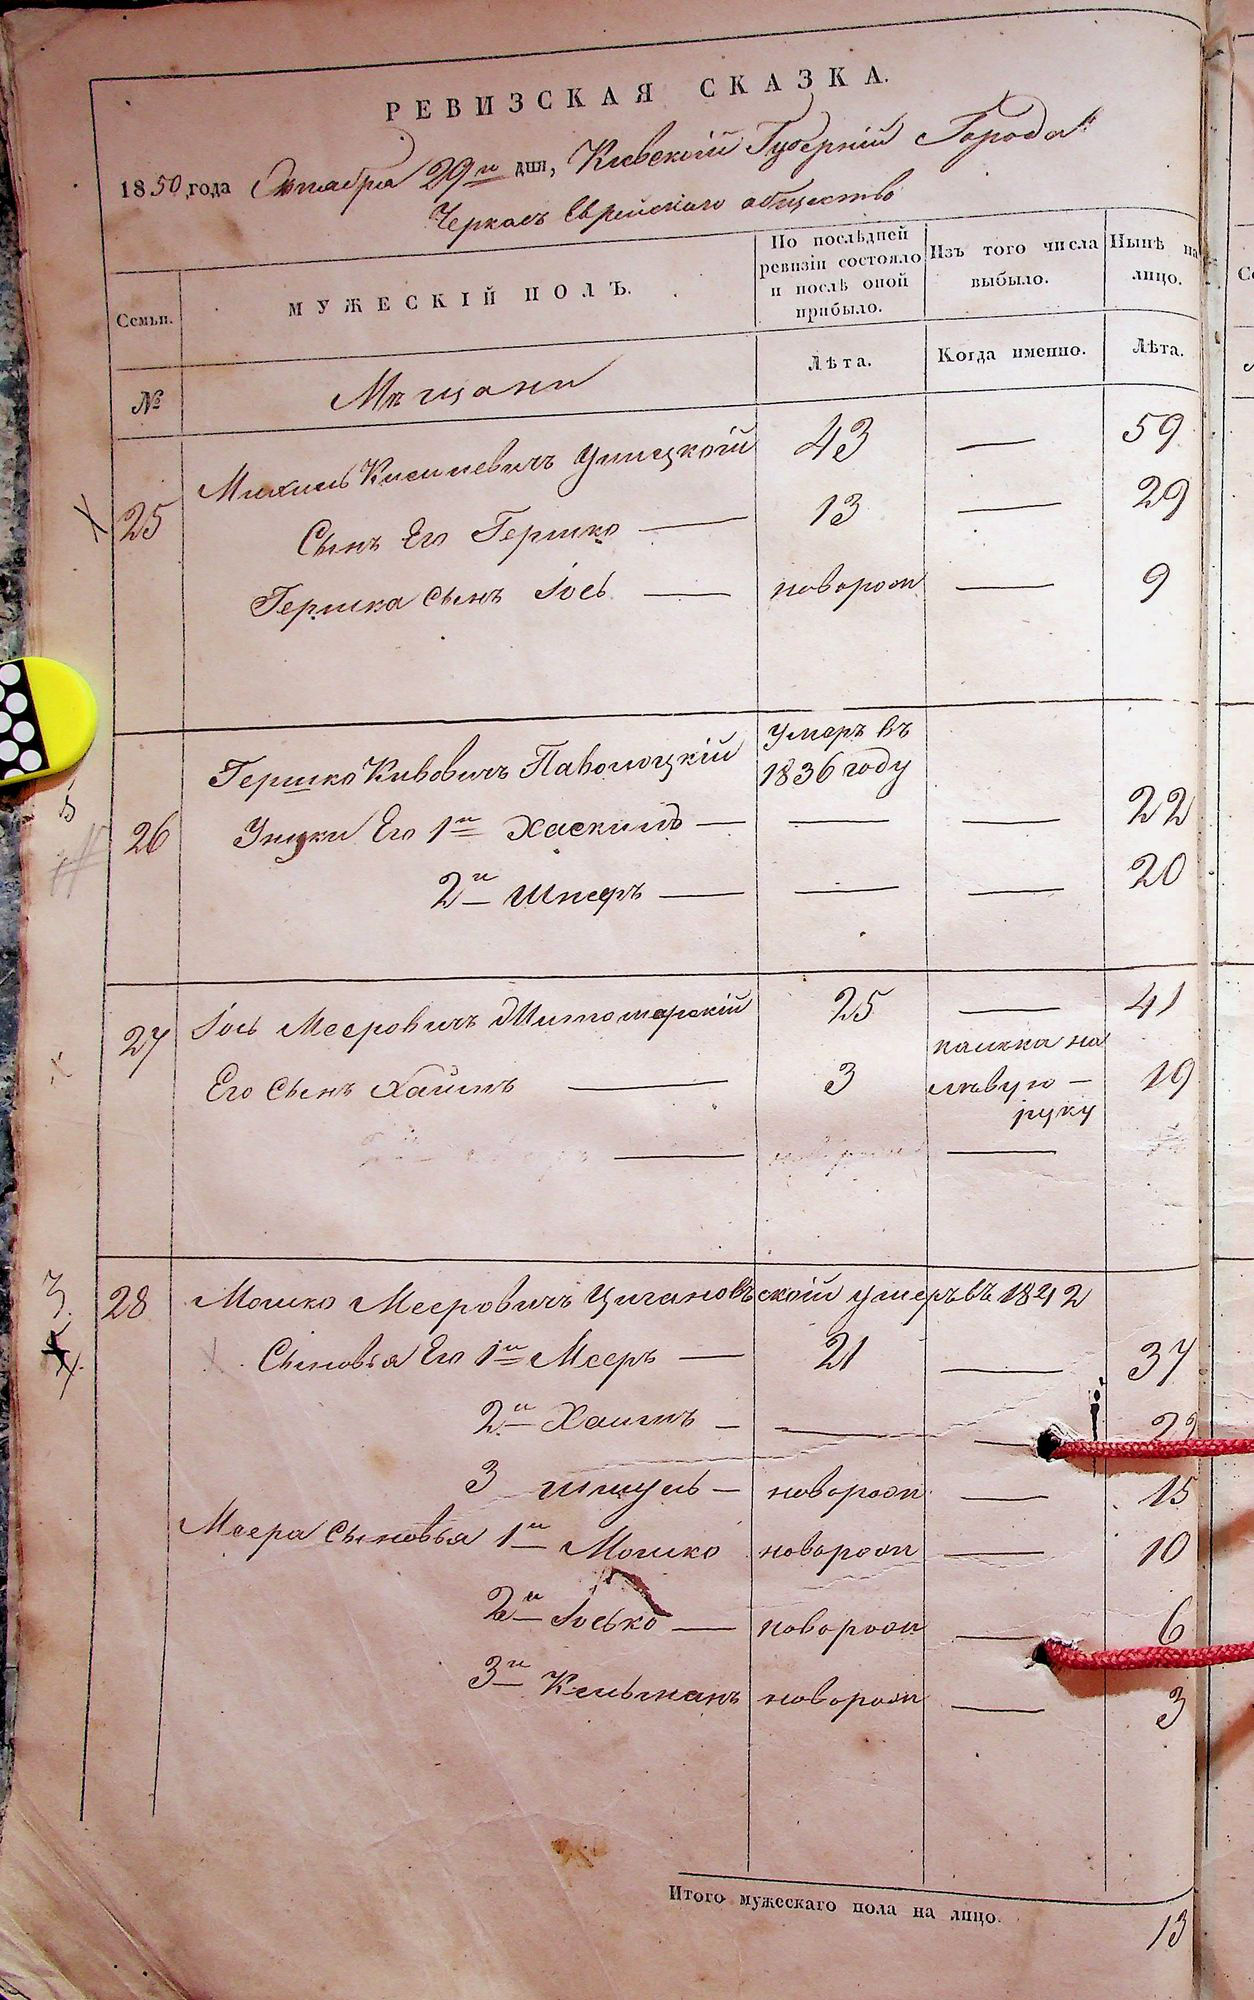 РЕВИЗСКАЯ СКАЗКА.
1850 года Октября 29го дня, Киевскій Губерніи Города
Черкасъ Еврейскаго общество
Семьи. МУЖЕСКІЙ ПОЛЪ. По послѣдней ревизіи состояло и послѣ оной прибыло. Изъ того числа выбыло. Нынѣ на лицо.
№ Мѣщани Лѣта. Когда именно. Лѣта.
25 43 — 59
Сынъ Его Гершко — 13 — 29
Гершка сынъ Іось — новорож — 9
26 Гершко Кивовичъ Паволоцкій умеръ въ 1836 году
Унуки Его 1й Хаскиль — — — 22
2й Шперъ — — — 20
27 Іось Мееровичъ Житомирскій 25 — 41
Его Сынъ Хаимъ — 3 калѣка на лѣвую — руку 19
28 Мошко Мееровичъ Цигановъскій умеръ въ 1842
Сыновья Его 1й Мееръ — 21 — 37
2й Хаимъ — — — 22
3 Шмуль — новорож — 15
Меера сыновья 1й Мошко новорож — 10
2й Іосько — новорож — 6
3й Кельманъ новорож — 3
Итого мужескаго пола на лицо. 13